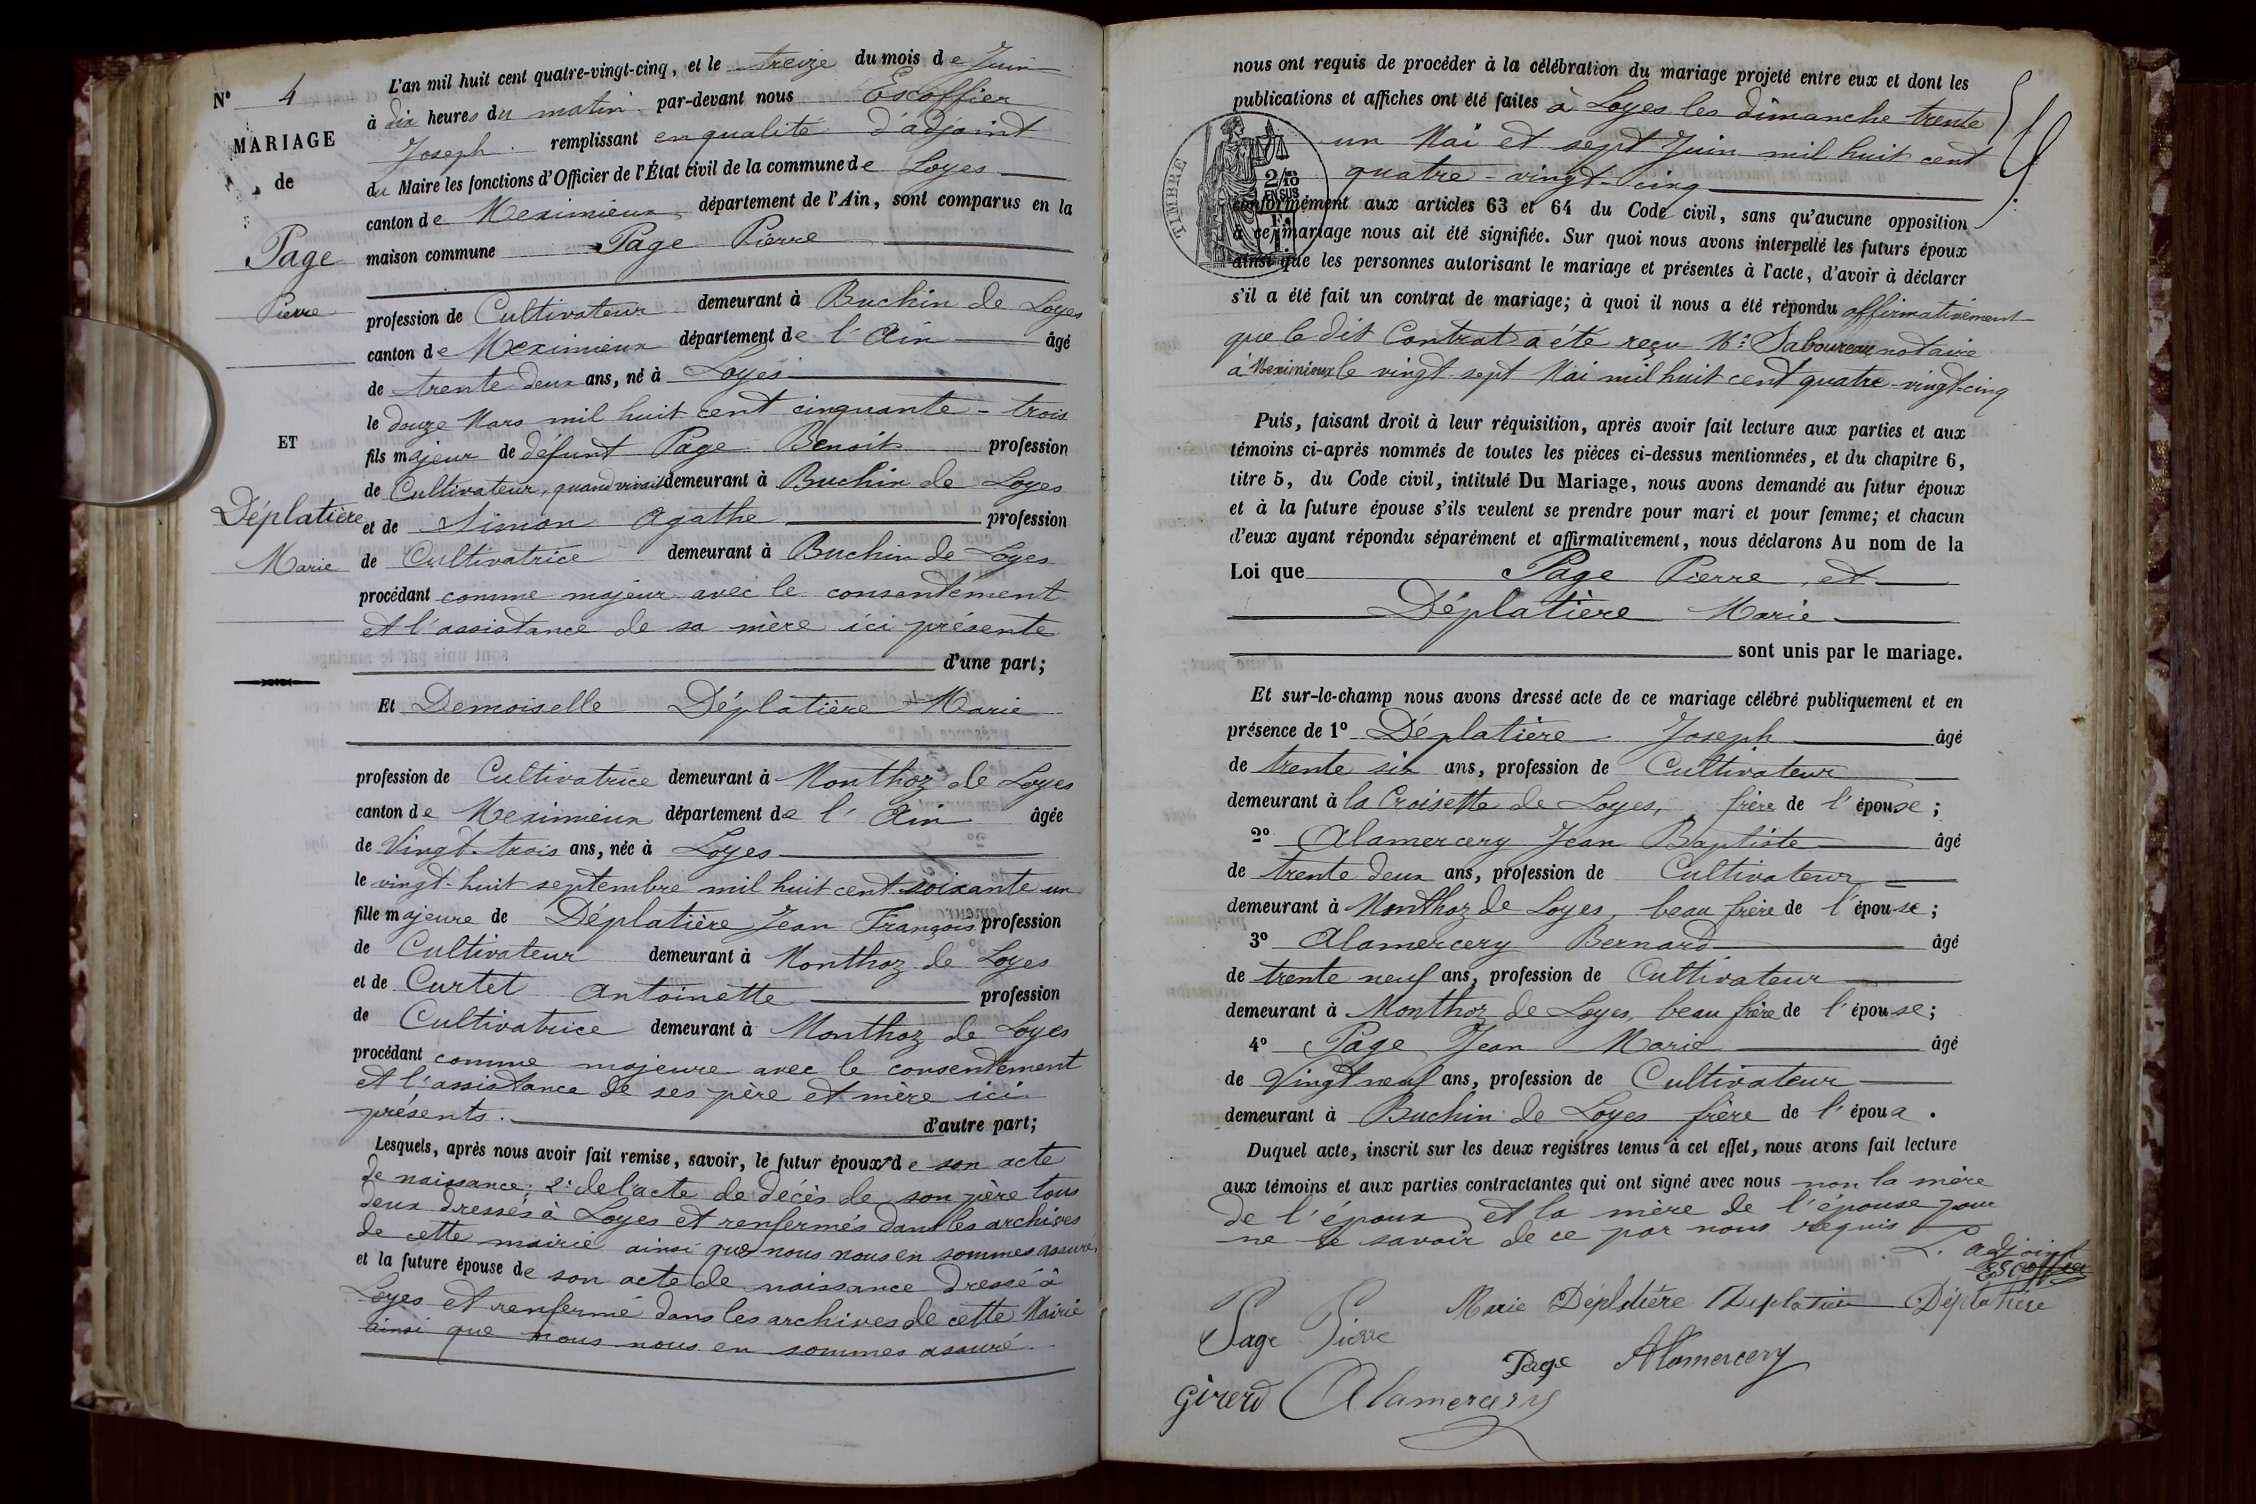 N° 4
MARIAGE
de
Page
Pierre
ET
Déplatière
Marie
L'an mil huit cent quatre-vingt-cinq, et le treize du mois de Juin
à dix heures du matin par-devant nous Escoffier
Joseph remplissant en qualité d'adjoint
du Maire les fonctions d'Officier de l'État civil de la commune de Loyes
canton de Meximieux département de l'Ain, sont comparus en la
maison commune Page Pierre
profession de Cultivateur demeurant à Buchin de Loyes
canton de Meximieux département de l'Ain âgé
de trente deux ans, né à Loyes
le douze Mars mil huit cent cinquante-trois
fils majeur de défunt Page Benoit profession
de Cultivateur, quand vivait demeurant à Buchin de Loyes
et de Simon Agathe profession
de Cultivatrice demeurant à Buchin de Loyes
procédant comme majeur avec le consentement
et l'assistance de sa mère ici présente
d'une part;
Et Demoiselle Déplatière Marie
profession de Cultivatrice demeurant à Monthoz de Loyes
canton de Meximieux département de l'Ain âgée
de Vingt-trois ans, née à Loyes
le vingt-huit septembre mil huit cent soixante-un
fille majeure de Déplatière Jean François profession
de Cultivateur demeurant à Monthoz de Loyes
et de Curtet Antoinette profession
de Cultivatrice demeurant à Monthoz de Loyes
procédant comme majeure avec le consentement
et l'assistance de ses père et mère ici
présents. d'autre part;
Lesquels, après nous avoir fait remise, savoir, le futur époux 1° de son acte
de naissance; 2° de l'acte de décès de son père tous
deux dressés à Loyes et renfermés dans les archives
de cette mairie ainsi que nous nous en sommes assuré,
et la future épouse de son acte de naissance dressé à
Loyes et renfermé dans les archives de cette Mairie
ainsi que nous nous en sommes assuré
nous ont requis de procéder à la célébration du mariage projeté entre eux et dont les
publications et affiches ont été faites à Loyes les dimanche trente
un Mai et sept Juin mil huit cent
quatre-vingt-cinq
TIMBRE
2/10
EN SUS
conformément aux articles 63 et 64 du Code civil, sans qu'aucune opposition
à ce mariage nous ait été signifiée. Sur quoi nous avons interpellé les futurs époux
ainsi que les personnes autorisant le mariage et présentes à l'acte, d'avoir à déclarer
s'il a été fait un contrat de mariage; à quoi il nous a été répondu affirmativement
que le dit Contrat a été reçu Me Saboureau notaire
à Meximieux le vingt-sept Mai mil huit cent quatre-vingt-cinq
Puis, faisant droit à leur réquisition, après avoir fait lecture aux parties et aux
témoins ci-après nommés de toutes les pièces ci-dessus mentionnées, et du chapitre 6,
titre 5, du Code civil, intitulé Du Mariage, nous avons demandé au futur époux
et à la future épouse s'ils veulent se prendre pour mari et pour femme; et chacun
d'eux ayant répondu séparément et affirmativement, nous déclarons Au nom de la
Loi que Page Pierre et
Déplatière Marie
sont unis par le mariage.
Et sur-le-champ nous avons dressé acte de ce mariage célébré publiquement et en
présence de 1° Déplatière Joseph âgé
de trente six ans, profession de Cultivateur
demeurant à la Croisette de Loyes, frère de l'épouse;
2° Alamercery Jean Baptiste âgé
de trente deux ans, profession de Cultivateur
demeurant à Monthoz de Loyes, beau frère de l'épouse;
3° Alamercery Bernard âgé
de trente neuf ans, profession de Cultivateur
demeurant à Monthoz de Loyes, beau frère de l'épouse;
4° Page Jean Marie âgé
de Vingt neuf ans, profession de Cultivateur
demeurant à Buchin de Loyes frère de l'époux.
Duquel acte, inscrit sur les deux registres tenus à cet effet, nous avons fait lecture
aux témoins et aux parties contractantes qui ont signé avec nous non la mère
de l'époux et la mère de l'épouse pour
ne le savoir de ce par nous requis
L. adjoint
Escoffier
Page Pierre Marie Déplatière Déplatière Déplatière
Page Alamercery
Girerd Alamercery